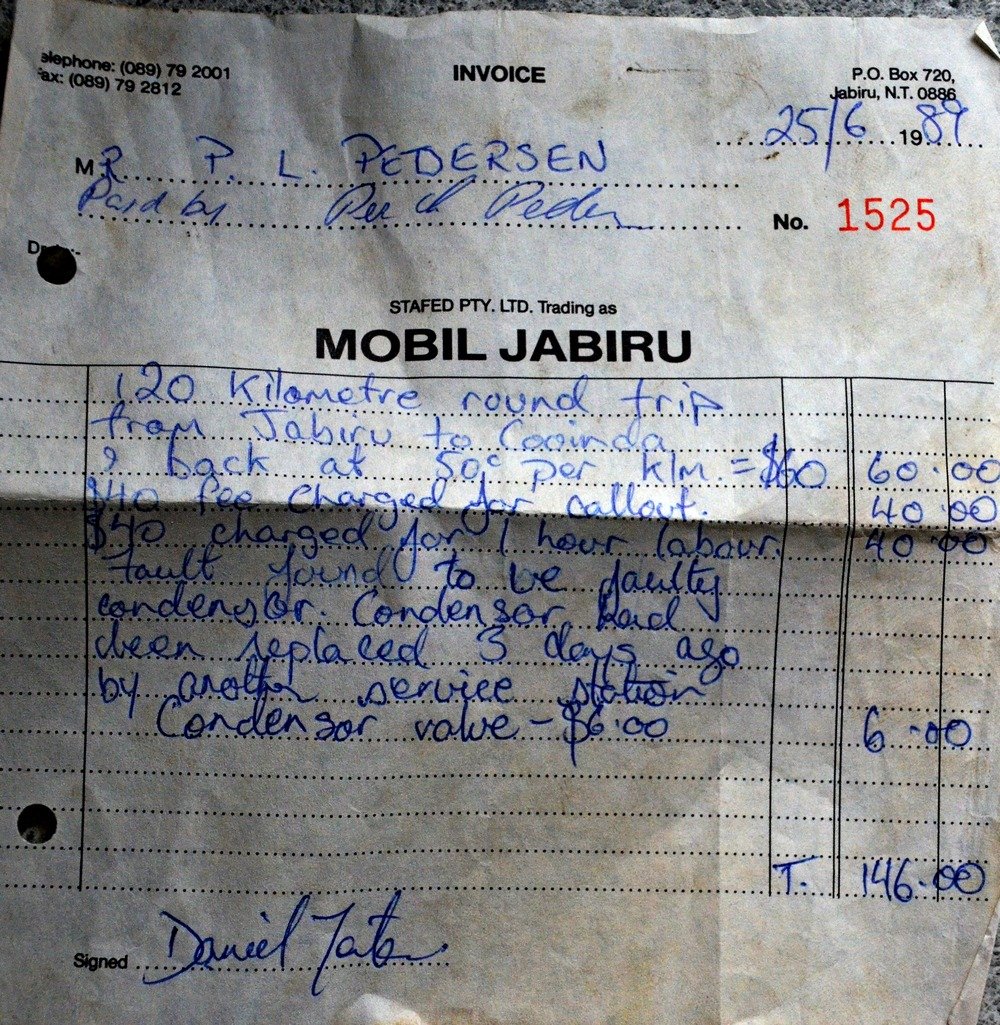 elephone: (089) 79 2001
ax: (089) 79 2812
INVOICE
P.O. Box 720,
Jabiru, N.T. 0886
25/6 1989
MR. P. L. PEDERSEN
Paid by
No. 1525
STAFED PTY. LTD. Trading as
MOBIL JABIRU
120 Kilometre round trip
from Jabiru to Cooinda
& back at 50c per klm. = $60 60.00
$40 fee charged for callout. 40.00
$40 charged for 1 hour labour. 40.00
fault found to be faulty
condensor. Condensor had
been replaced 3 days ago
by another service station
Condensor value - $6.00 6.00
T. 146.00
Signed Daniel